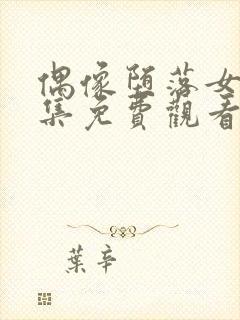 偶像堕落女
集免費觀看
葉辛